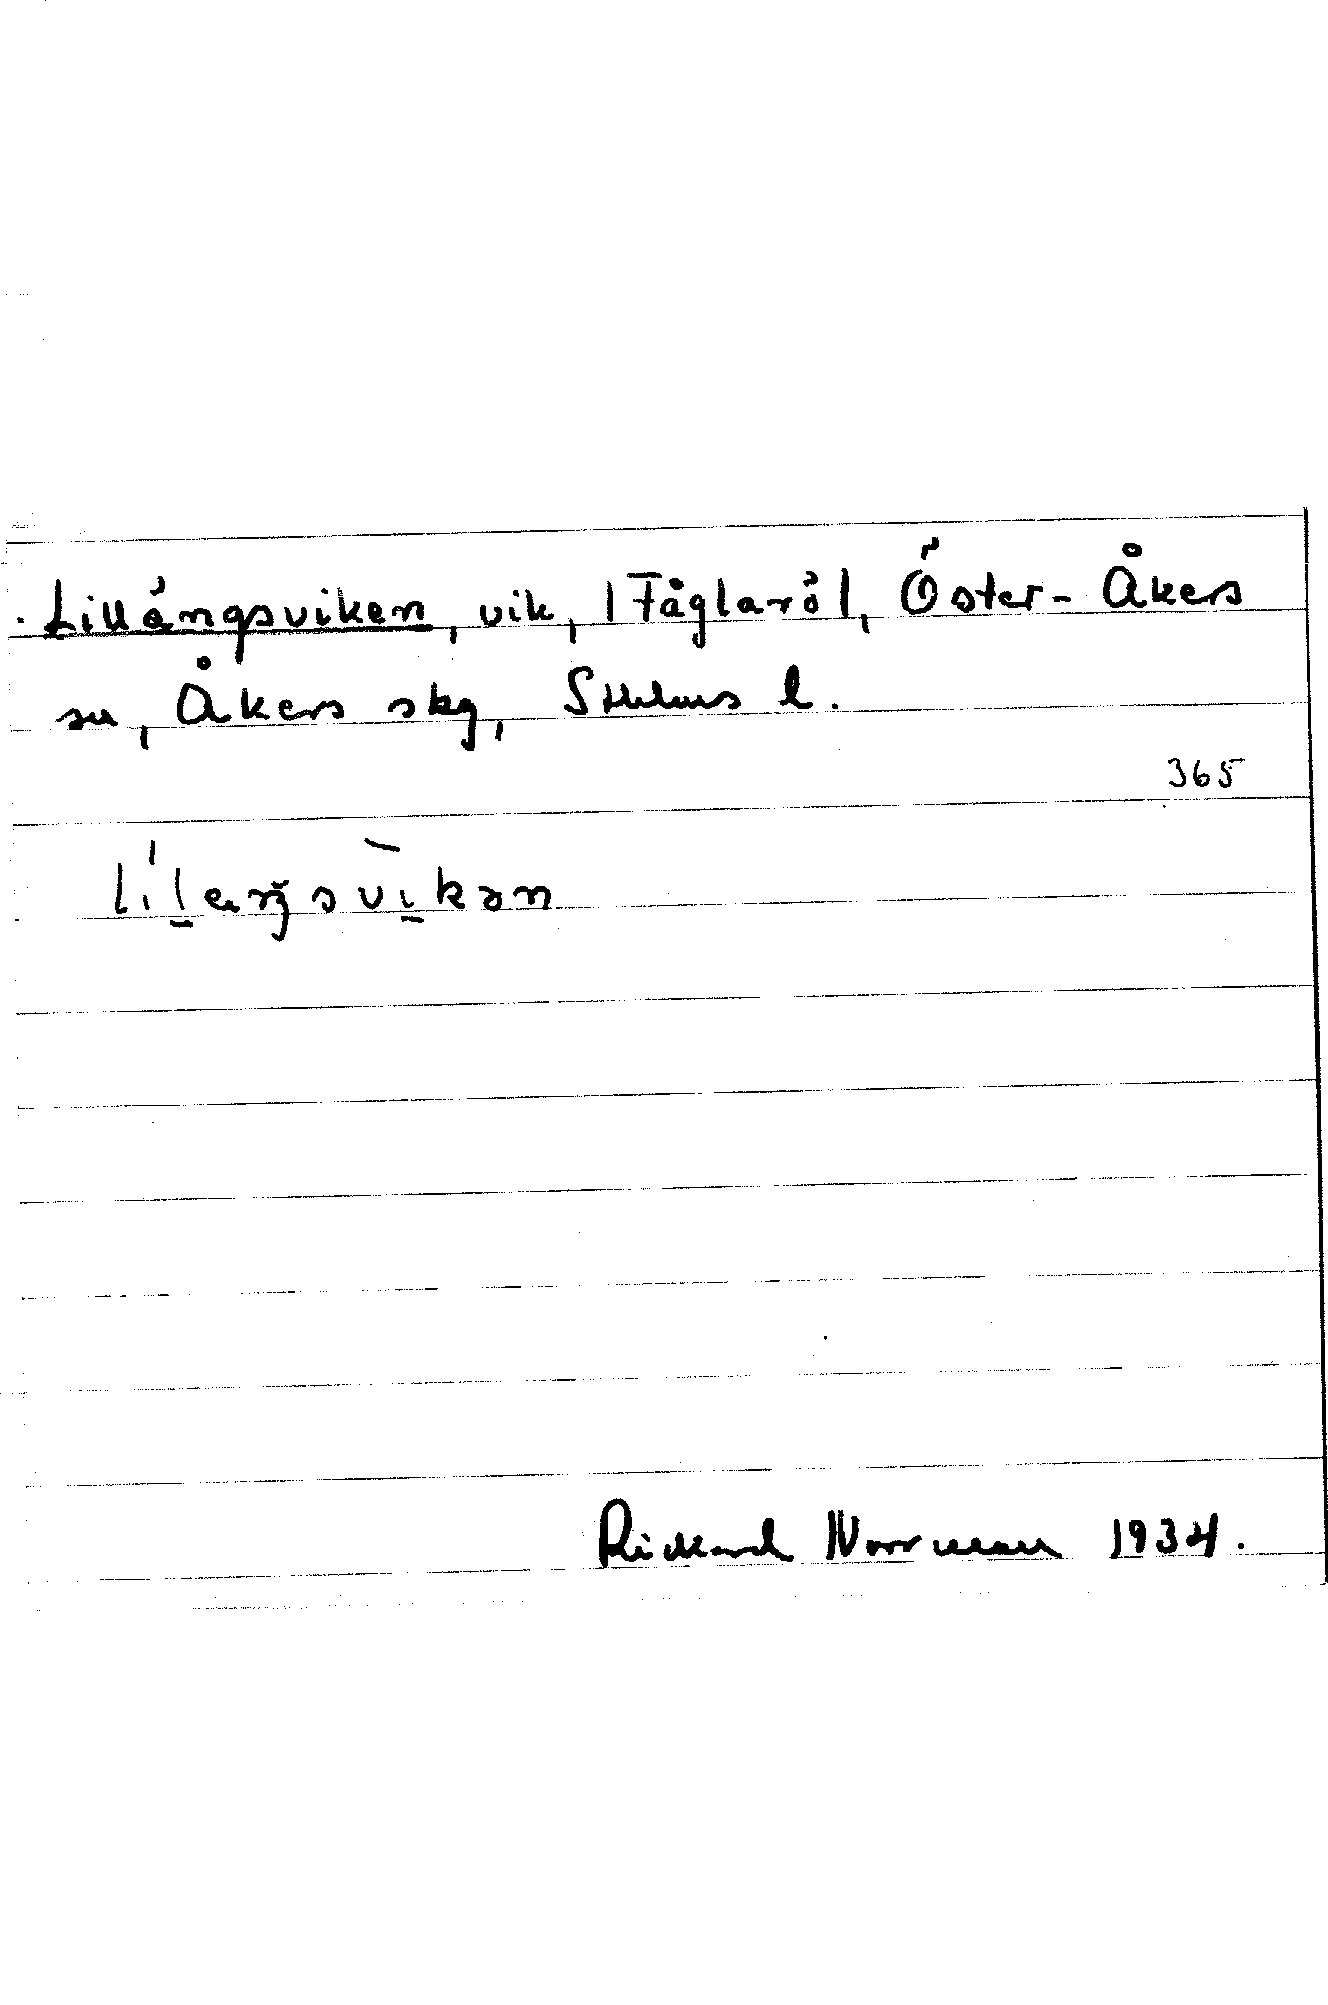 Lillängsviken, vik, |Fåglarö|, Öster-Åkers
sn, Åkers skg, Sthlms l.
365
Rickard Norrman 1934.